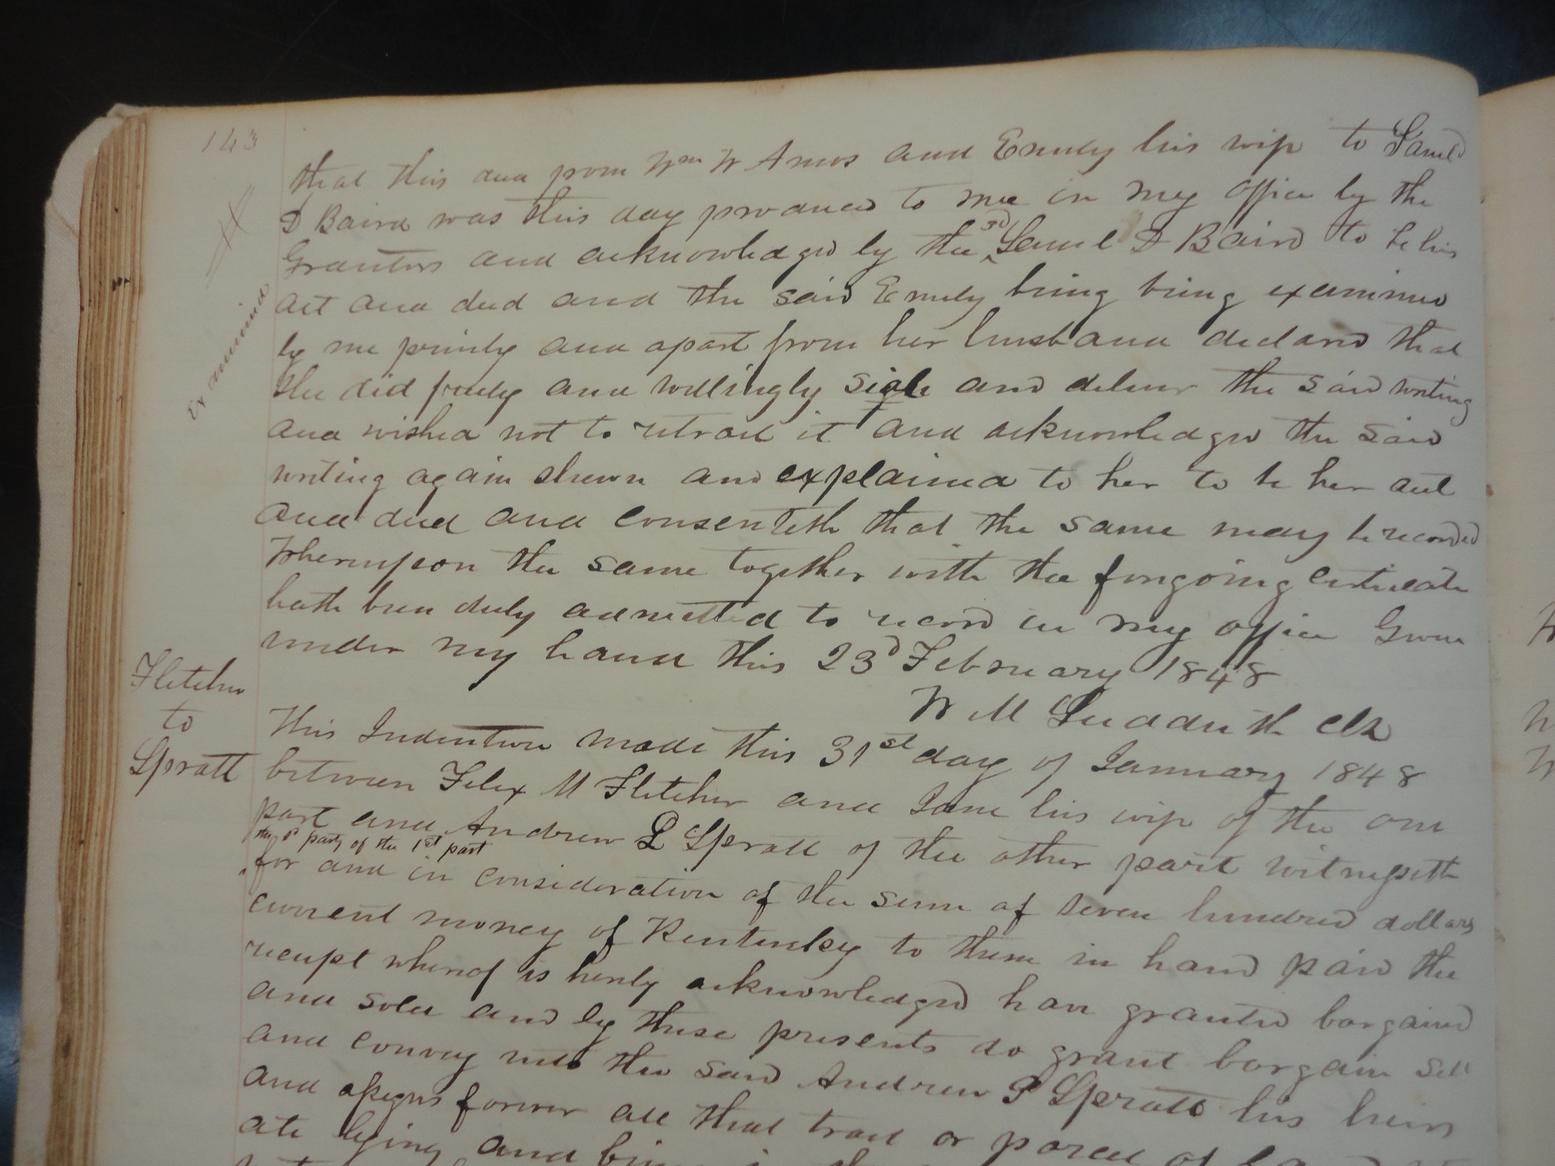 143
that this deed from Wm W Amos and Emily his wife to Saml
D Baird was this day produced to me in my office by the
Grantors and acknowledged by the sd Saml D Baird to be his
act and deed and the said Emily being being examined
by me privily and apart from her husband declared that
She did freely and willingly Seal and deliver the said writing
and wished not to retract it and acknowledged the said
writing again shewn and explained to her to be her act
and deed and consenteth that the same may be recorded
Whereupon the same together with the foregoing certificate
hath been duly admitted to record in my office Given
under my hand this 23d February 1848
W M Sudduth clk
Examined
Fletcher
to
Spratt
This Indenture made this 31st day of January 1848
between Felix M Fletcher and Jane his wife of the one
part and Andrew P Spratt of the other part witnesseth
the sd party of the 1st part
for and in consideration of the sum of seven hundred dollars
current money of Kentucky to them in hand paid the
receipt whereof is hereby acknowledged have granted bargained
and sold and by these presents do grant bargain sell
and convey unto the said Andrew P Spratt his heirs
and assigns forever all that tract or parcel of
ate lying and being in the